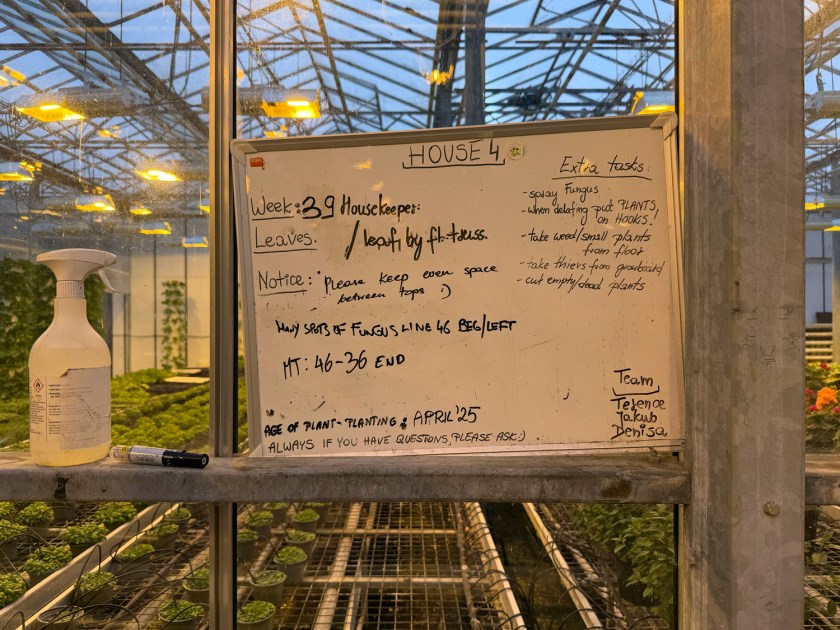 HOUSE 4
Week: 39 Housekeeper:
Leaves. / leafs by fl. truss.
Notice: Please keep even space
between tops :)
MANY SPOTS OF FUNGUS LINE 46 BEG/LEFT
MT: 46-36 END
AGE OF PLANT-PLANTING: APRIL '25
ALWAYS IF YOU HAVE QUESTONS, PLEASE ASK:)
Extra tasks:
- spray Fungus
- when delafing-put PLANTS,
on HOOKS!
- take weed/small plants
from floor
- take thievs from growboard
- cut empty/dead plants
Team
Terence
Jakub
Denisa